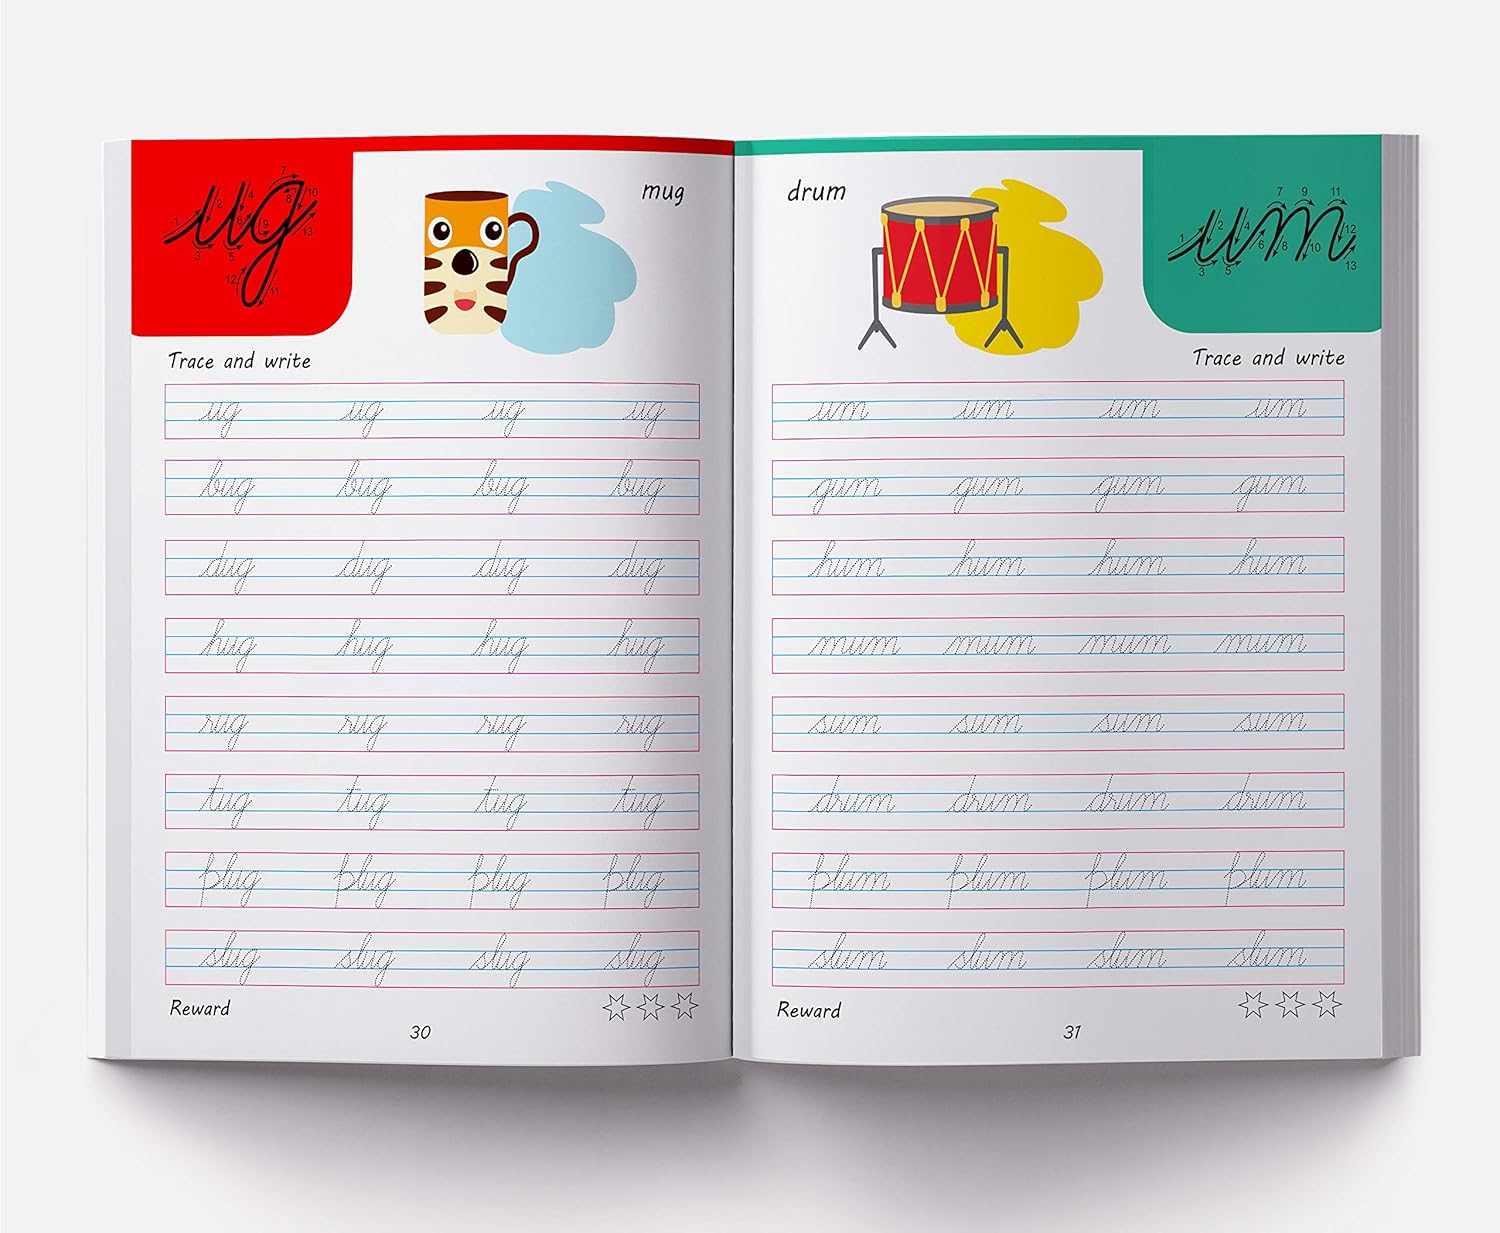 ug
mug
Trace and write
ug ug ug ug
bug bug bug bug
dug dug dug dug
hug hug hug hug
rug rug rug rug
tug tug tug tug
plug plug plug plug
slug slug slug slug
Reward
30
drum
um
Trace and write
um um um um
gum gum gum gum
hum hum hum hum
mum mum mum mum
sum sum sum sum
drum drum drum drum
plum plum plum plum
slum slum slum slum
Reward
31